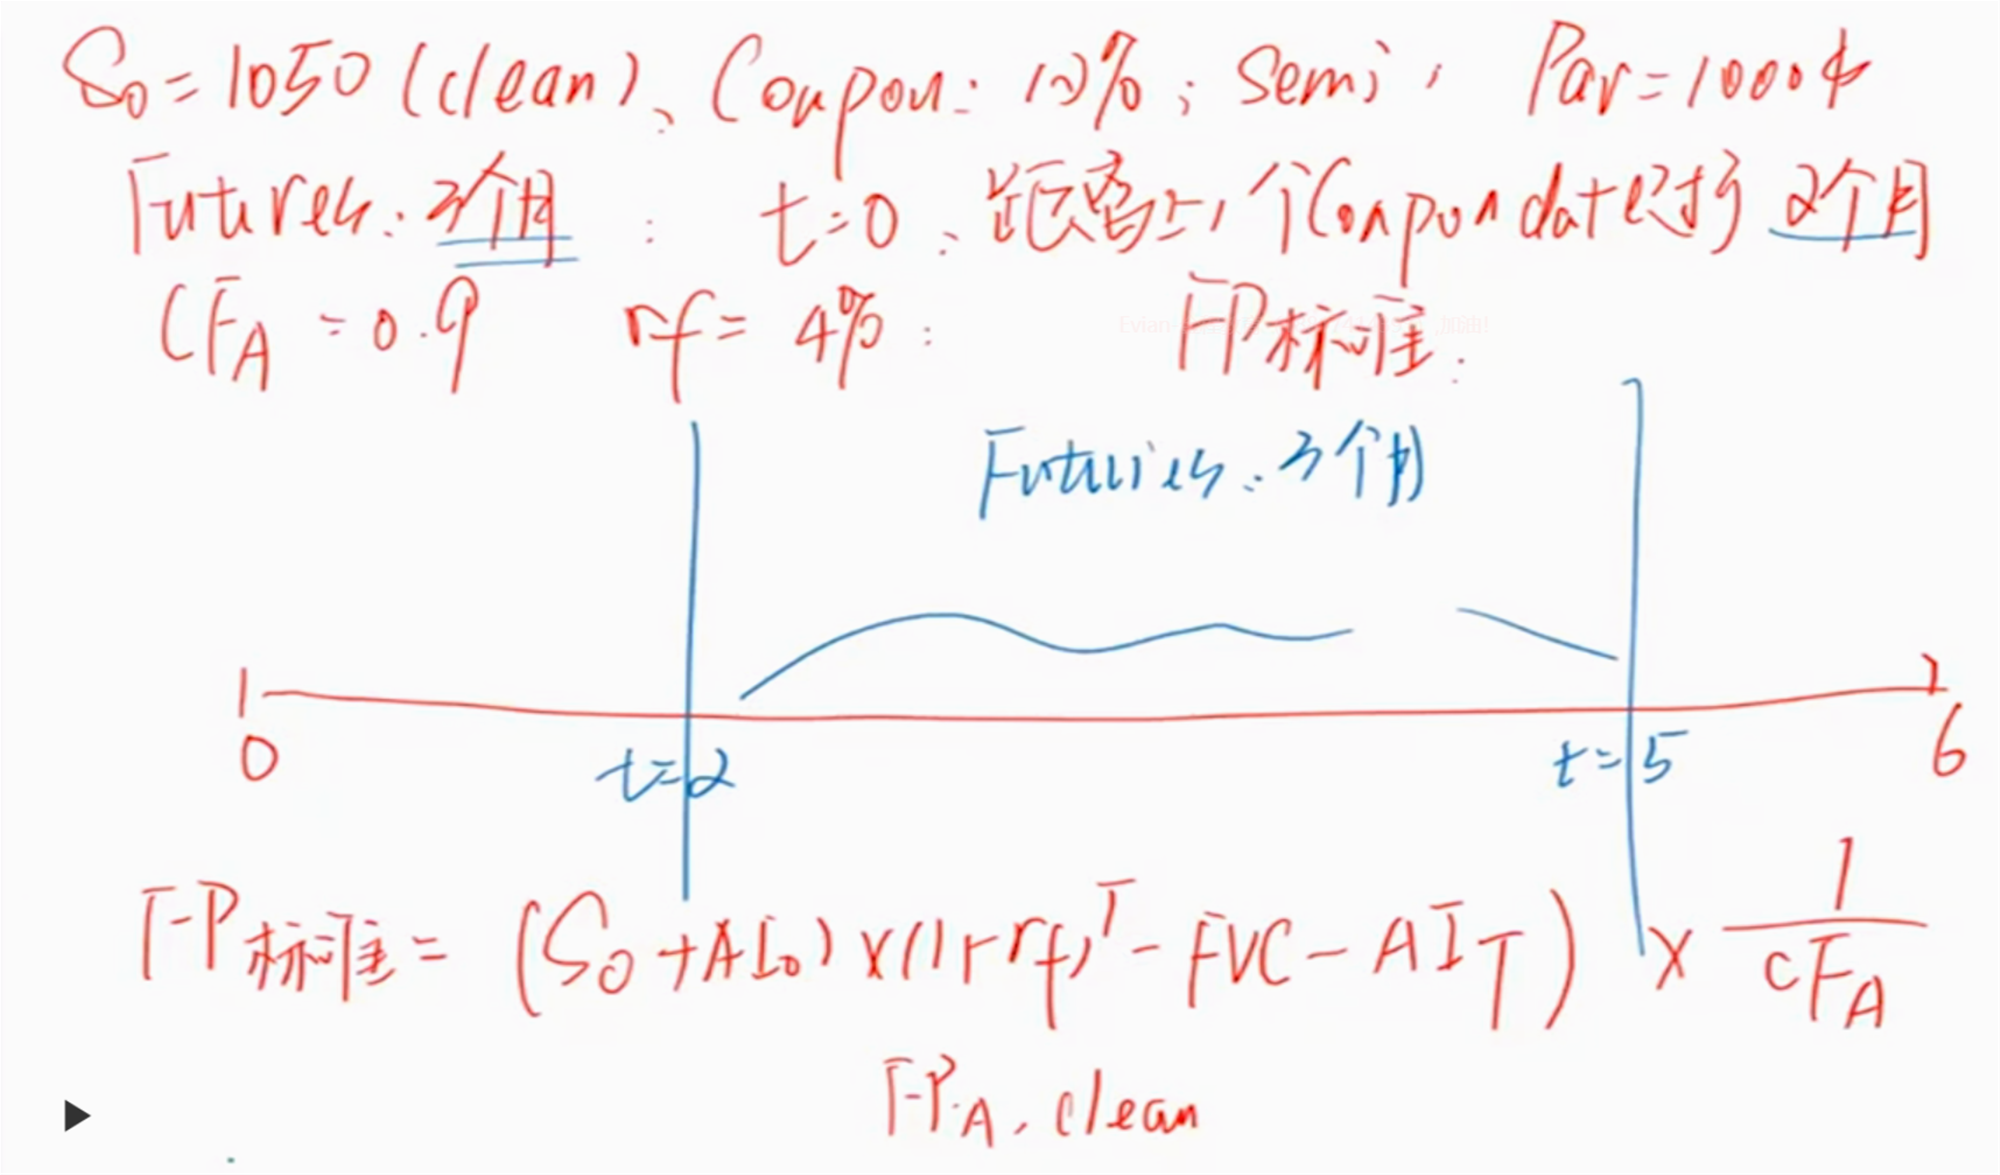 S₀=1050 (clean)、Coupon: 10%; Semi, Par=1000$
Futures: 3个月: t=0: 距离上1个Coupon date已过了2个月
CF_A=0.9 rf=4%: FP标准:
Futures: 3个月
0 t=2 t=5 6
FP标准=((S₀+AI₀)×(1+rf)^T-FVC-AI_T)×1/CF_A
FP_A, clean